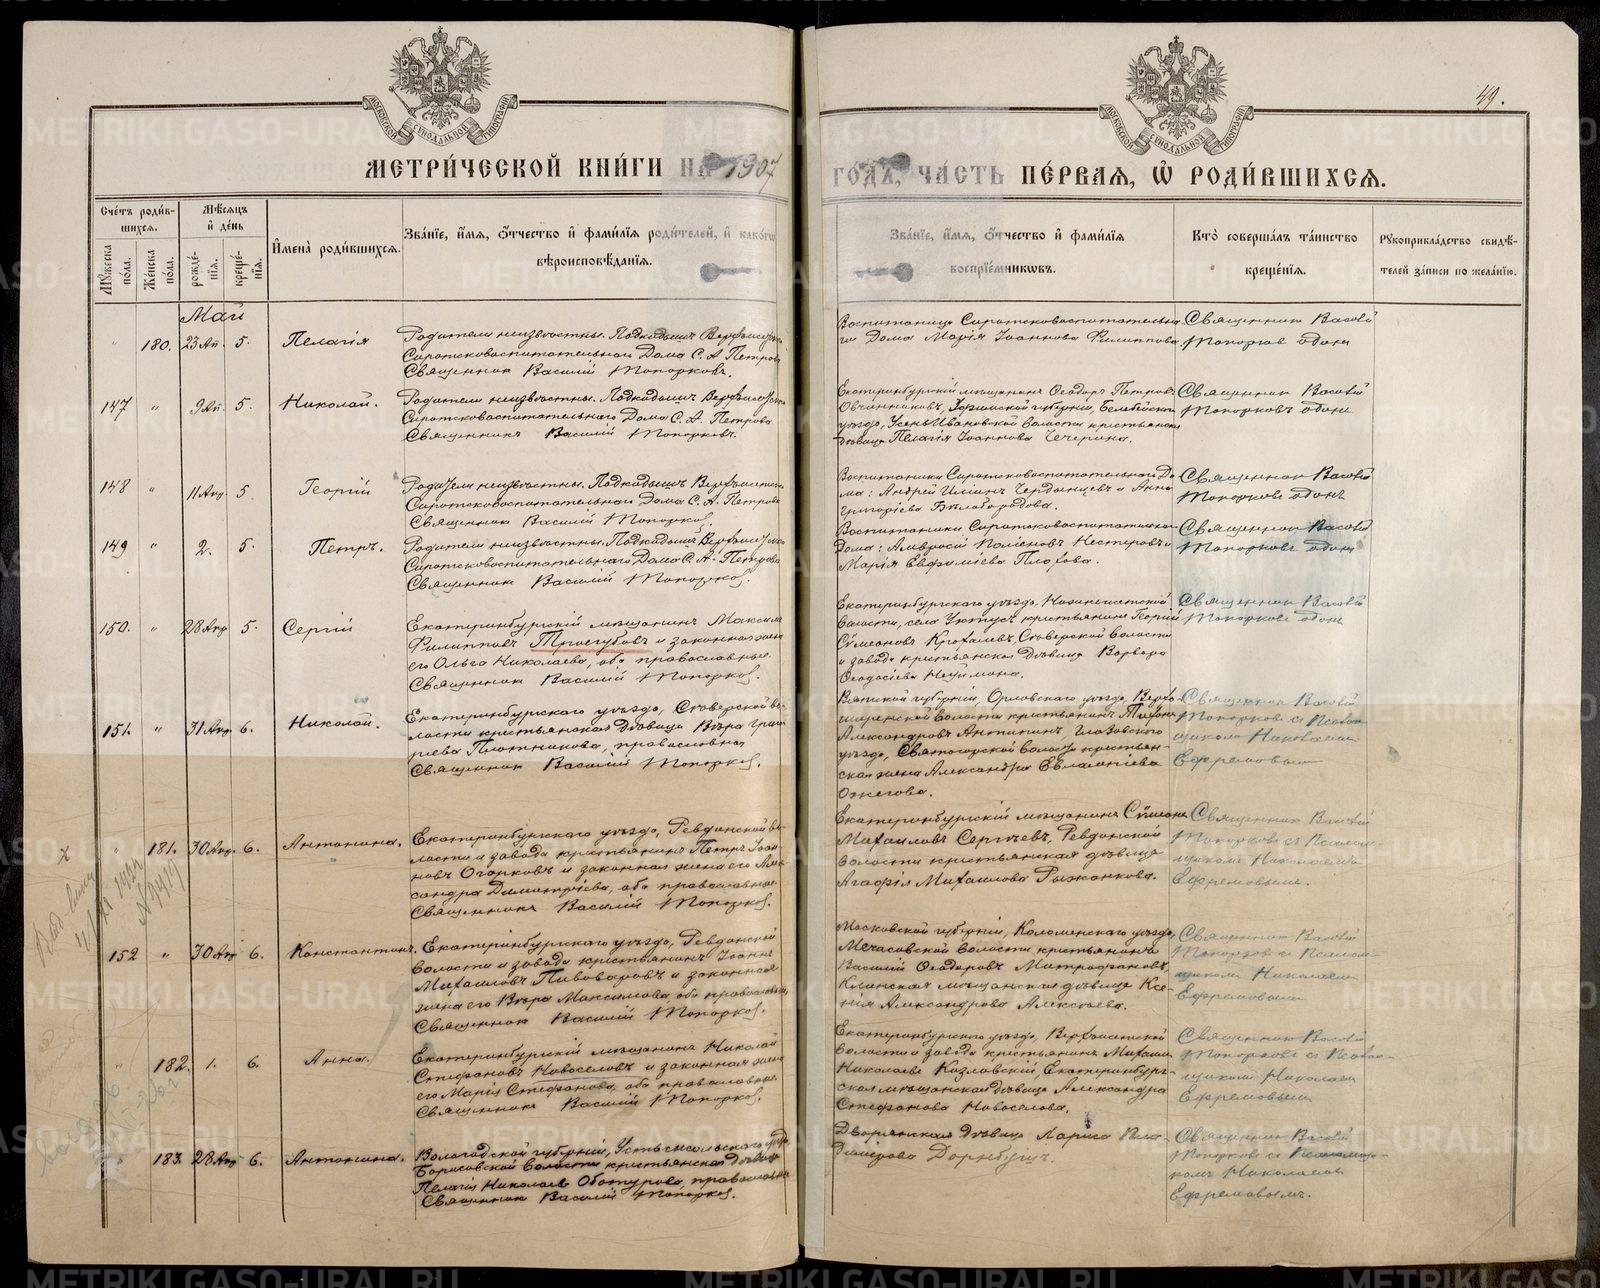 49.
МЕТРИ́ЧЕСКОЙ КНИ́ГИ НА 1907
ГОДЪ, ЧА́СТЬ ПЕ́РВАѦ, Ѡ҆ РОДИ́ВШИХСѦ.
Сче́тъ роди́в-
шихсѧ.
Мѣ́сѧцъ
и҆ де́нь
Мꙋ́жеска по́ла.
Же́нска по́ла.
рожде́-нїѧ.
креще́-нїѧ.
И҆мена̀ роди́вшихсѧ.
Зва́нїе, и҆́мѧ, ѻ҆́тчество и҆ фами́лїѧ роди́телей, и҆ како́гѡ
вѣроисповѣ́данїѧ.
Зва́нїе, и҆́мѧ, ѻ҆́тчество и҆ фами́лїѧ
воспрїе́мникѡвъ.
Кто̀ соверша́лъ та́инство
креще́нїѧ.
Рꙋкоприкла́дство свидѣ́-
телей за́писи по жела́нїю.
Май
180. 23 Ап. 5. Пелагія
Родители неизвѣстны. Подкидышъ
Сиротсковоспитательнаго Дома С. А. Петрова
Священникъ Василій Топорковъ.
Дома Марія Іоаннова Филиппова.
Священникъ Василій
Топорковъ одинъ
147 " 9 Ап. 5. Николай.
Родители неизвѣстны. Подкидышъ
Сиротсковоспитательнаго Дома С. А. Петрова
Священникъ Василій Топорковъ.
Екатеринбургскій мѣщанинъ Ѳеодоръ Петровъ
Овчинниковъ, Уфимской губерніи, Белебейскаго
уѣзда, Усень-Ивановской волости крестьянская
дѣвица Пелагія Іоаннова Чечерина.
Священникъ Василій
Топорковъ одинъ
148 " 11 Апр. 5. Георгій
Родители неизвѣстны. Подкидышъ
Сиротсковоспитательнаго Дома С. А. Петрова
Священникъ Василій Топорковъ.
Воспитанники Сиротсковоспитательнаго До-
ма: Андрей Чердынцевъ и Анна
Григоріева Бѣлобородова.
Священникъ Василій
Топорковъ одинъ
149 " 2. 5. Петръ.
Родители неизвѣстны. Подкидышъ
Сиротсковоспитательнаго Дома С. А. Петрова
Священникъ Василій Топорковъ.
Воспитанники Сиротсковоспитательнаго
Дома: Амвросій Нестеровъ и
Марія Евфиміева
Священникъ Василій
Топорковъ одинъ
150. " 28 Апр 5. Сергій
Екатеринбургскій мѣщанинъ Максимъ
Филипповъ Троегубовъ и законная жена
его Ольга Николаева, оба православные.
Священникъ Василій Топорковъ.
Екатеринбургскаго уѣзда, Нижнеисетской
волости, села Уктусъ крестьянинъ Георгій
Сѵмеоновъ Крохалевъ, Сѣверской волости
и завода крестьянская дѣвица Варвара
Ѳеодосіева
Священникъ Василій
Топорковъ одинъ
151. " 31 Апр. 6. Николай.
Екатеринбургскаго уѣзда, Сѣверской во-
лости крестьянская дѣвица Вѣра Григо-
рьева Плотникова, православная
Священникъ Василій Топорковъ.
Вятской губерніи, Орловскаго уѣзда,
волости крестьянинъ
Александровъ Антипинъ, Глазовскаго
уѣзда, Святогорской волости крестьян-
ская жена Александра Евлампіева
Ожегова.
Священникъ Василій
Топорковъ съ Псалом-
щикомъ Николаемъ
Ефремовымъ
181. 30 Апр. 6. Антонина.
Екатеринбургскаго уѣзда, Ревдинской во-
лости и завода крестьянинъ Петръ Іоан-
новъ Огорковъ и законная жена его Але-
ксандра Димитріева, оба православные.
Священникъ Василій Топорковъ.
Екатеринбургскій мѣщанинъ Сѵмеонъ
Михаиловъ Сергѣевъ, Ревдинской
волости крестьянская дѣвица
Агафія Михаилова Рыжанкова.
Священникъ Василій
Топорковъ съ Псалом-
щикомъ Николаемъ
Ефремовымъ.
152 " 30 Апр 6. Константинъ.
Екатеринбургскаго уѣзда, Ревдинской
волости и завода крестьянинъ Іоаннъ
Михаиловъ Пивоваровъ и законная
жена его Вѣра Максимова, оба православные,
Священникъ Василій Топорковъ.
Московской губерніи, Коломенскаго уѣзда,
Мячковской волости крестьянинъ
Василій Ѳеодоровъ Митрофановъ,
Клинская мѣщанская дѣвица Ксе-
нія Александрова Алексѣева.
Священникъ Василій
Топорковъ съ Псалом-
щикомъ Николаемъ
Ефремовымъ
182. 1. 6. Анна.
Екатеринбургскій мѣщанинъ Николай
Стефановъ Новоселовъ и законная жена
его Марія Стефанова, оба православные.
Священникъ Василій Топорковъ.
Екатеринбургскаго уѣзда, Верхъисетской
волости и завода крестьянинъ Михаилъ
Николаевъ Козловскій, Екатеринбург-
ская мѣщанская дѣвица Александра
Стефанова Новоселова.
Священникъ Василій
Топорковъ съ Псалом-
щикомъ Николаемъ
Ефремовымъ
183. 28 Апр 6. Антонина.
Вологодской губерніи, Устьсысольскаго уѣзда,
Борисовской волости крестьянская дѣвица
Пелагія Николаева Обатурова, православная
Священникъ Василій Топорковъ.
Дворянская дѣвица Лариса Вла-
диміровна Дорнбушъ.
Священникъ Василій
Топорковъ съ Псаломщи-
комъ Николаемъ
Ефремовымъ.
METRIKI.GASO-URAL.RU